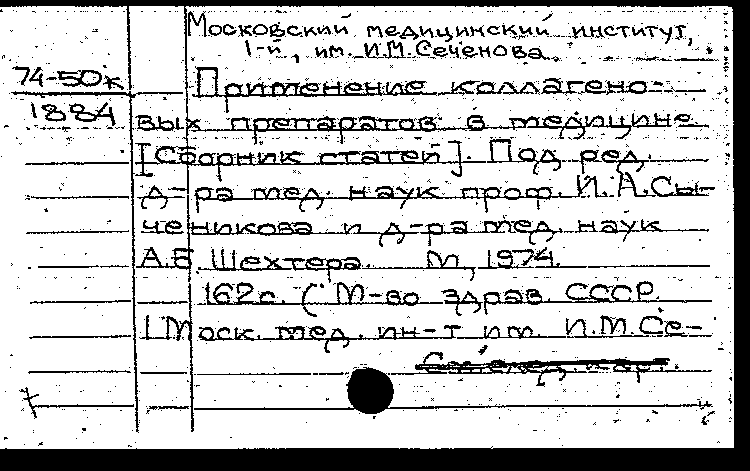 Московский медицинский институт,
1-й, им. И.М.Сеченова.
74-50к
1884
Применение коллагено-
вых препаратов в медицине
[Сборник статей]. Под ред.
д-ра мед. наук проф. И.А.Сы-
ченикова и д-ра мед. наук
А.Б. Шехтера. М, 1974.
162с. (М-во здрав. СССР.
I Моск. мед. ин-т им. И.М.Се-
См.след.карт.